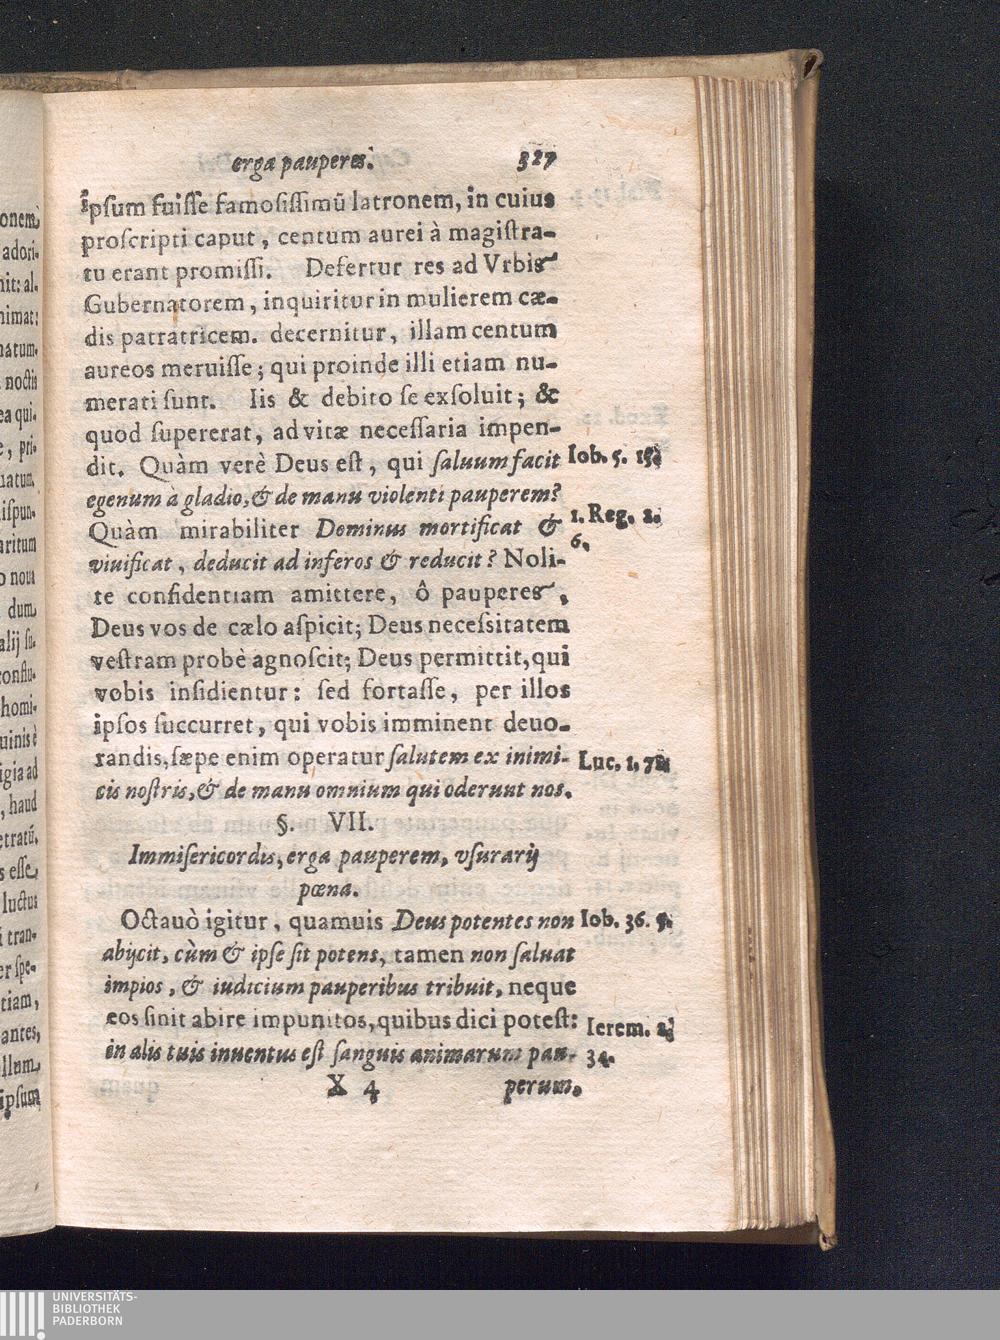 erga pauperes. 327
ipsum fuisse famosissimū latronem, in cuius
proscripti caput, centum aurei à magistra-
tu erant promissi. Defertur res ad Vrbis
Gubernatorem, inquiritur in mulierem cæ-
dis patratricem. decernitur, illam centum
aureos meruisse; qui proinde illi etiam nu-
merati sunt. Iis & debito se exsoluit; &
quod supererat, ad vitæ necessaria impen-
dit. Quàm verè Deus est, qui saluum facit
egenum à gladio, & de manu violenti pauperem?
Quàm mirabiliter Dominus mortificat &
viuificat, deducit ad inferos & reducit? Noli-
te confidentiam amittere, ô pauperes,
Deus vos de cælo aspicit; Deus necessitatem
vestram probè agnoscit; Deus permittit, qui
vobis insidientur: sed fortasse, per illos
ipsos succurret, qui vobis imminent deuo-
randis, sæpe enim operatur salutem ex inimi-
cis nostris, & de manu omnium qui oderunt nos.
§. VII.
Immisericordis, erga pauperem, vsurarij
pœna.
Octauò igitur, quamuis Deus potentes non
abijcit, cùm & ipse sit potens, tamen non saluat
impios, & iudicium pauperibus tribuit, neque
eos sinit abire impunitos, quibus dici potest:
in alis tuis inuentus est sanguis animarum pau-
X 4 perum.
Iob. 5. 15.
1. Reg. 2.
6.
Luc. 1, 71.
Iob. 36. 5.
Ierem. 2.
34.
onem
adori-
nit: al.
nimat:
natum.
noctis
ea qui-
e, pri-
uatum.
ispun-
aritum
o noua
dum
alij su-
conflu-
homi-
uinis è
igia ad
, haud
etratū.
s esse
luctus
i tran-
er spe-
tiam,
antes,
llum
ipsum
UNIVERSITÄTS-
BIBLIOTHEK
PADERBORN